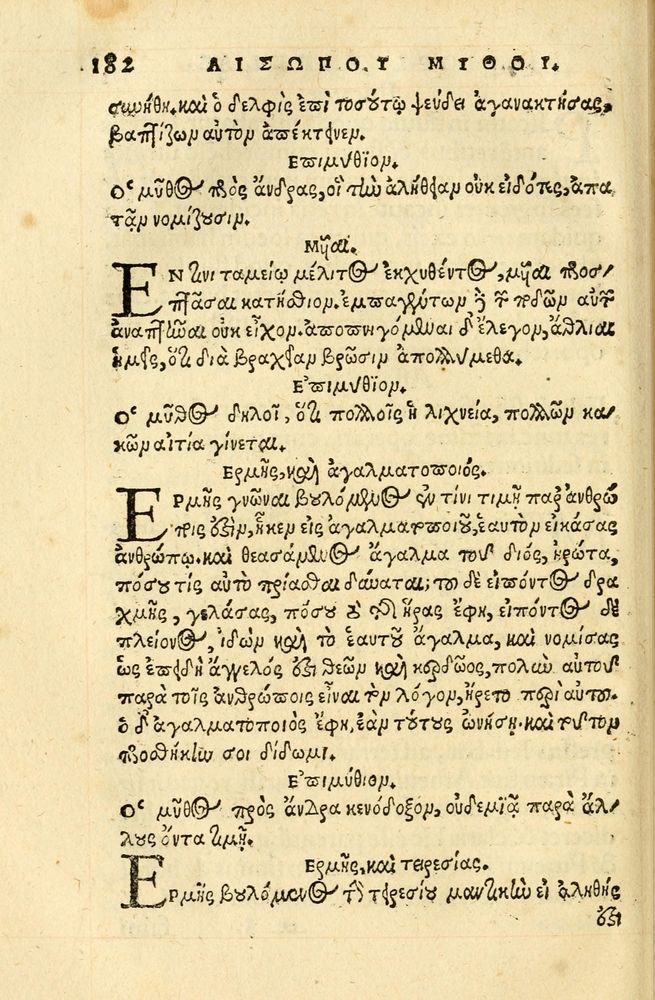 182 ΑΙΣΩΠΟΥ ΜΥΘΟΙ.
σιμήθη. καὶ ὁ δελφὶς ἐπὶ τοσούτῳ ψεύδει ἀγανακτήσας,
βαπτίζων αὐτὸν ἀπέκτεινεν.
Επιμύθϊον.
Ο μῦθος πρὸς ἄνδρας, οἳ τὴν ἀλήθειαν οὐκ εἰδότες, ἀπα
τᾶν νομίζουσιν.
Μῦαι.
ΕΝ τινι ταμείῳ μέλιτος ἐκχυθέντος, μῦαι προσ/
πτᾶσαι κατήσθιον. ἐμπαγέντων δὲ τῶν ποδῶν αὐτῶν
ἀναπτῆναι οὐκ εἶχον. ἀποπνιγόμεναι δ' ἔλεγον, ἄθλιαι
ἡμεῖς, ὅτι διὰ βραχεῖαν βρῶσιν ἀπολλύμεθα.
Ἐπιμύθϊον.
Ο μῦθος δηλοῖ, ὅτι πολλοῖς ἡ λιχνεία, πολλῶν κα/
κῶν αἰτία γίνεται.
Ερμῆς, καὶ ἀγαλματοποιός.
ΕΡμῆς γνῶναι βουλόμενος ἐν τίνι τιμῇ παρ' ἀνθρώ
ποις ἐστὶν, ἧκεν εἰς ἀγαλματοποιοῦ, ἑαυτὸν εἰκάσας
ἀνθρώπῳ. καὶ θεασάμενος ἄγαλμα τοῦ διός, ἠρώτα,
πόσου τίς αὐτὸ πρίασθαι δύναται; τοῦ δὲ εἰπόντος δρα
χμῆς, γελάσας, πόσου τὸ τῆς ἥρας ἔφη, εἰπόντος δὲ
πλείονος, ἰδὼν καὶ τὸ ἑαυτοῦ ἄγαλμα, καὶ νομίσας
ὡς ἐπειδὴ ἄγγελός ἐστι θεῶν καὶ κερδῶος, πολὺν αὐτοῦ
παρὰ τοῖς ἀνθρώποις εἶναι τὸν λόγον, ἤρετο περὶ αὐτοῦ.
ὁ δ' ἀγαλματοποιὸς ἔφη, ἐὰν τούτους ὠνήσῃ. καὶ τοῦτον
προσθήκην σοι δίδωμι.
Ἐπιμύθιον.
Ο μῦθος πρὸς ἄνδρα κενόδοξον, οὐδεμιᾷ παρὰ ἄλ/
λους ὄντα τιμῇ.
Ερμῆς, καὶ τειρεσίας.
ΕΡμῆς βουλόμενος τὴν τειρεσίου μαντικὴν εἰ ἀληθής
ἐστι